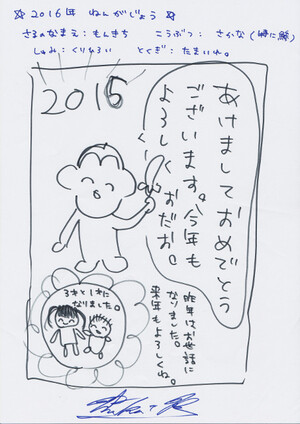 ☆ 2016年 ねんがじょう ☆
さるのなまえ：もんきち　こうぶつ：さかな（特に鰯）
しゅみ：くりひろい　とくぎ：たまいれ。
2016
あけましておめでとう
ございます。今年も
よろしくおだお。
昨年はお世話に
なりました。
来年もよろしくね。
3才と1才に
なりました。